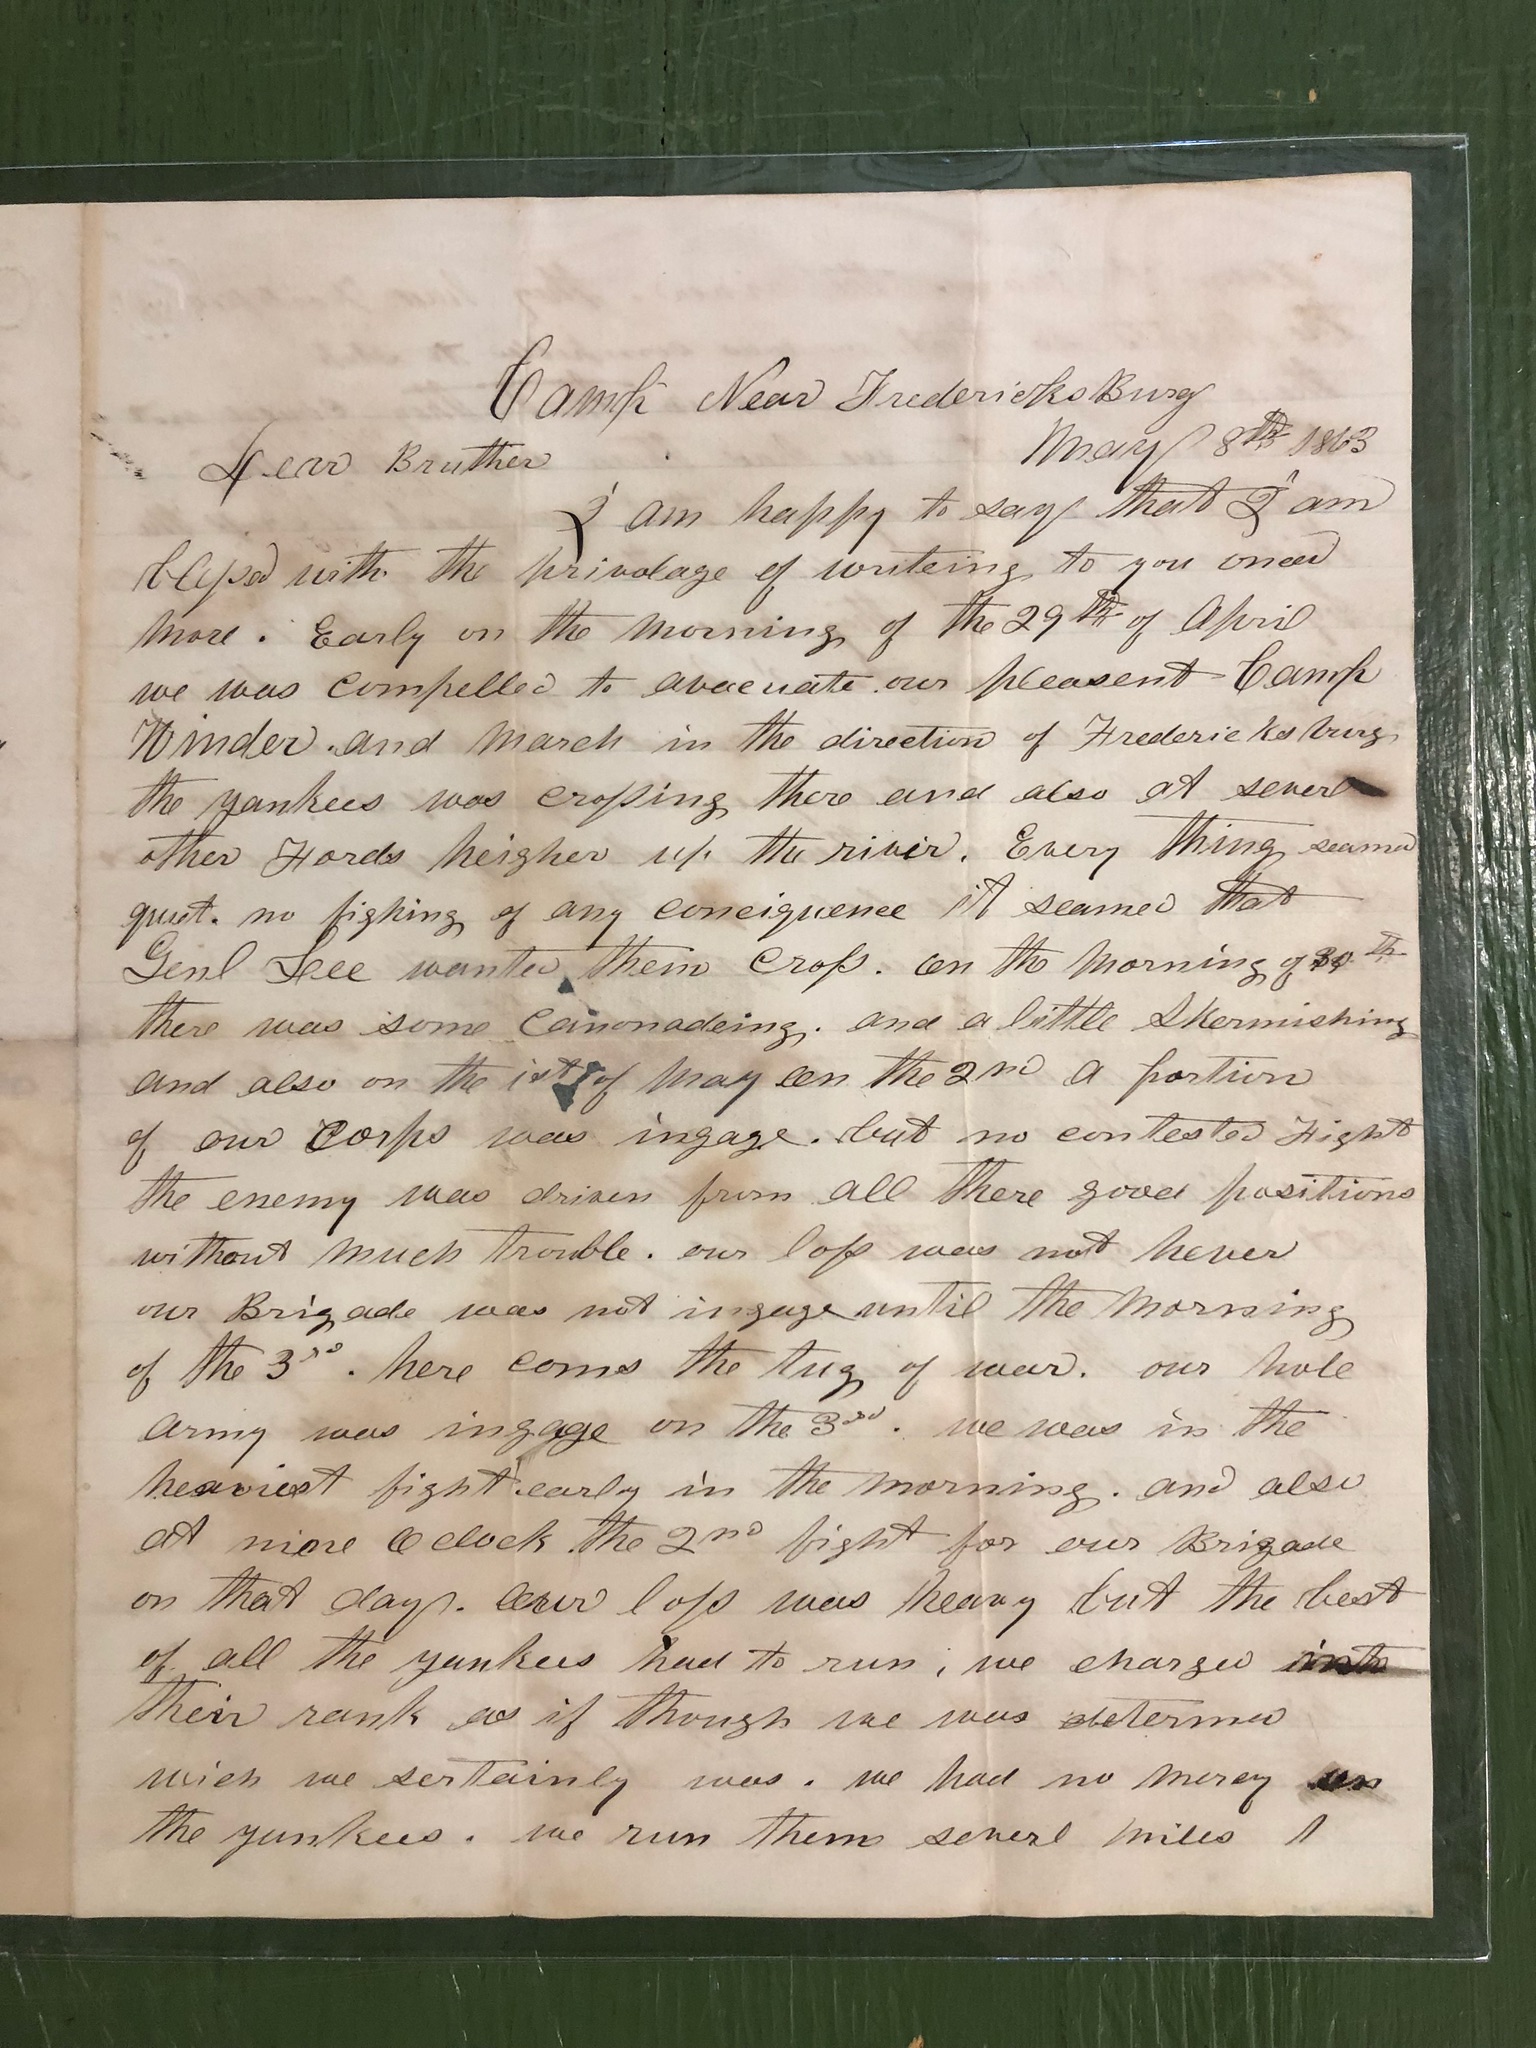 Camp Near FredericksBurg
May 8th 1863
Dear Bruther
I am happy to say that I am
blessed with the privolage of writeing to you onced
more. Early on the morning of the 29th of April
we was compelled to avacuate our pleasent Camp
Winder. and march in the direction of Fredericksburg
the yankees was crossing there and also at severl
other Fords heigher up the river. Every thing seamed
quiet. no fighing of any conciquence it seamed that
Genl Lee wanted them cross. on the morning of 30th
there was some canonadeing. and a little Skermishing
and also on the 1st of May on the 2nd a portion
of our Corps was ingage. but no contested Fight
the enemy was driven from all there good positions
without much trouble. our loss was not hever
our Brigade was not ingage until the morning
of the 3rd. here coms the tug of war. our hole
army was ingage on the 3rd. we was in the
heaviest fight early in the morning. and also
at nine Oclock the 2nd fight for our Brigade
on that day. Our loss was heavy but the best
of all the yankees had to run, we charged into
their rank as if though we was determed
wich we sertainly was. we had no mercy on
the yankees. we run them severl miles I